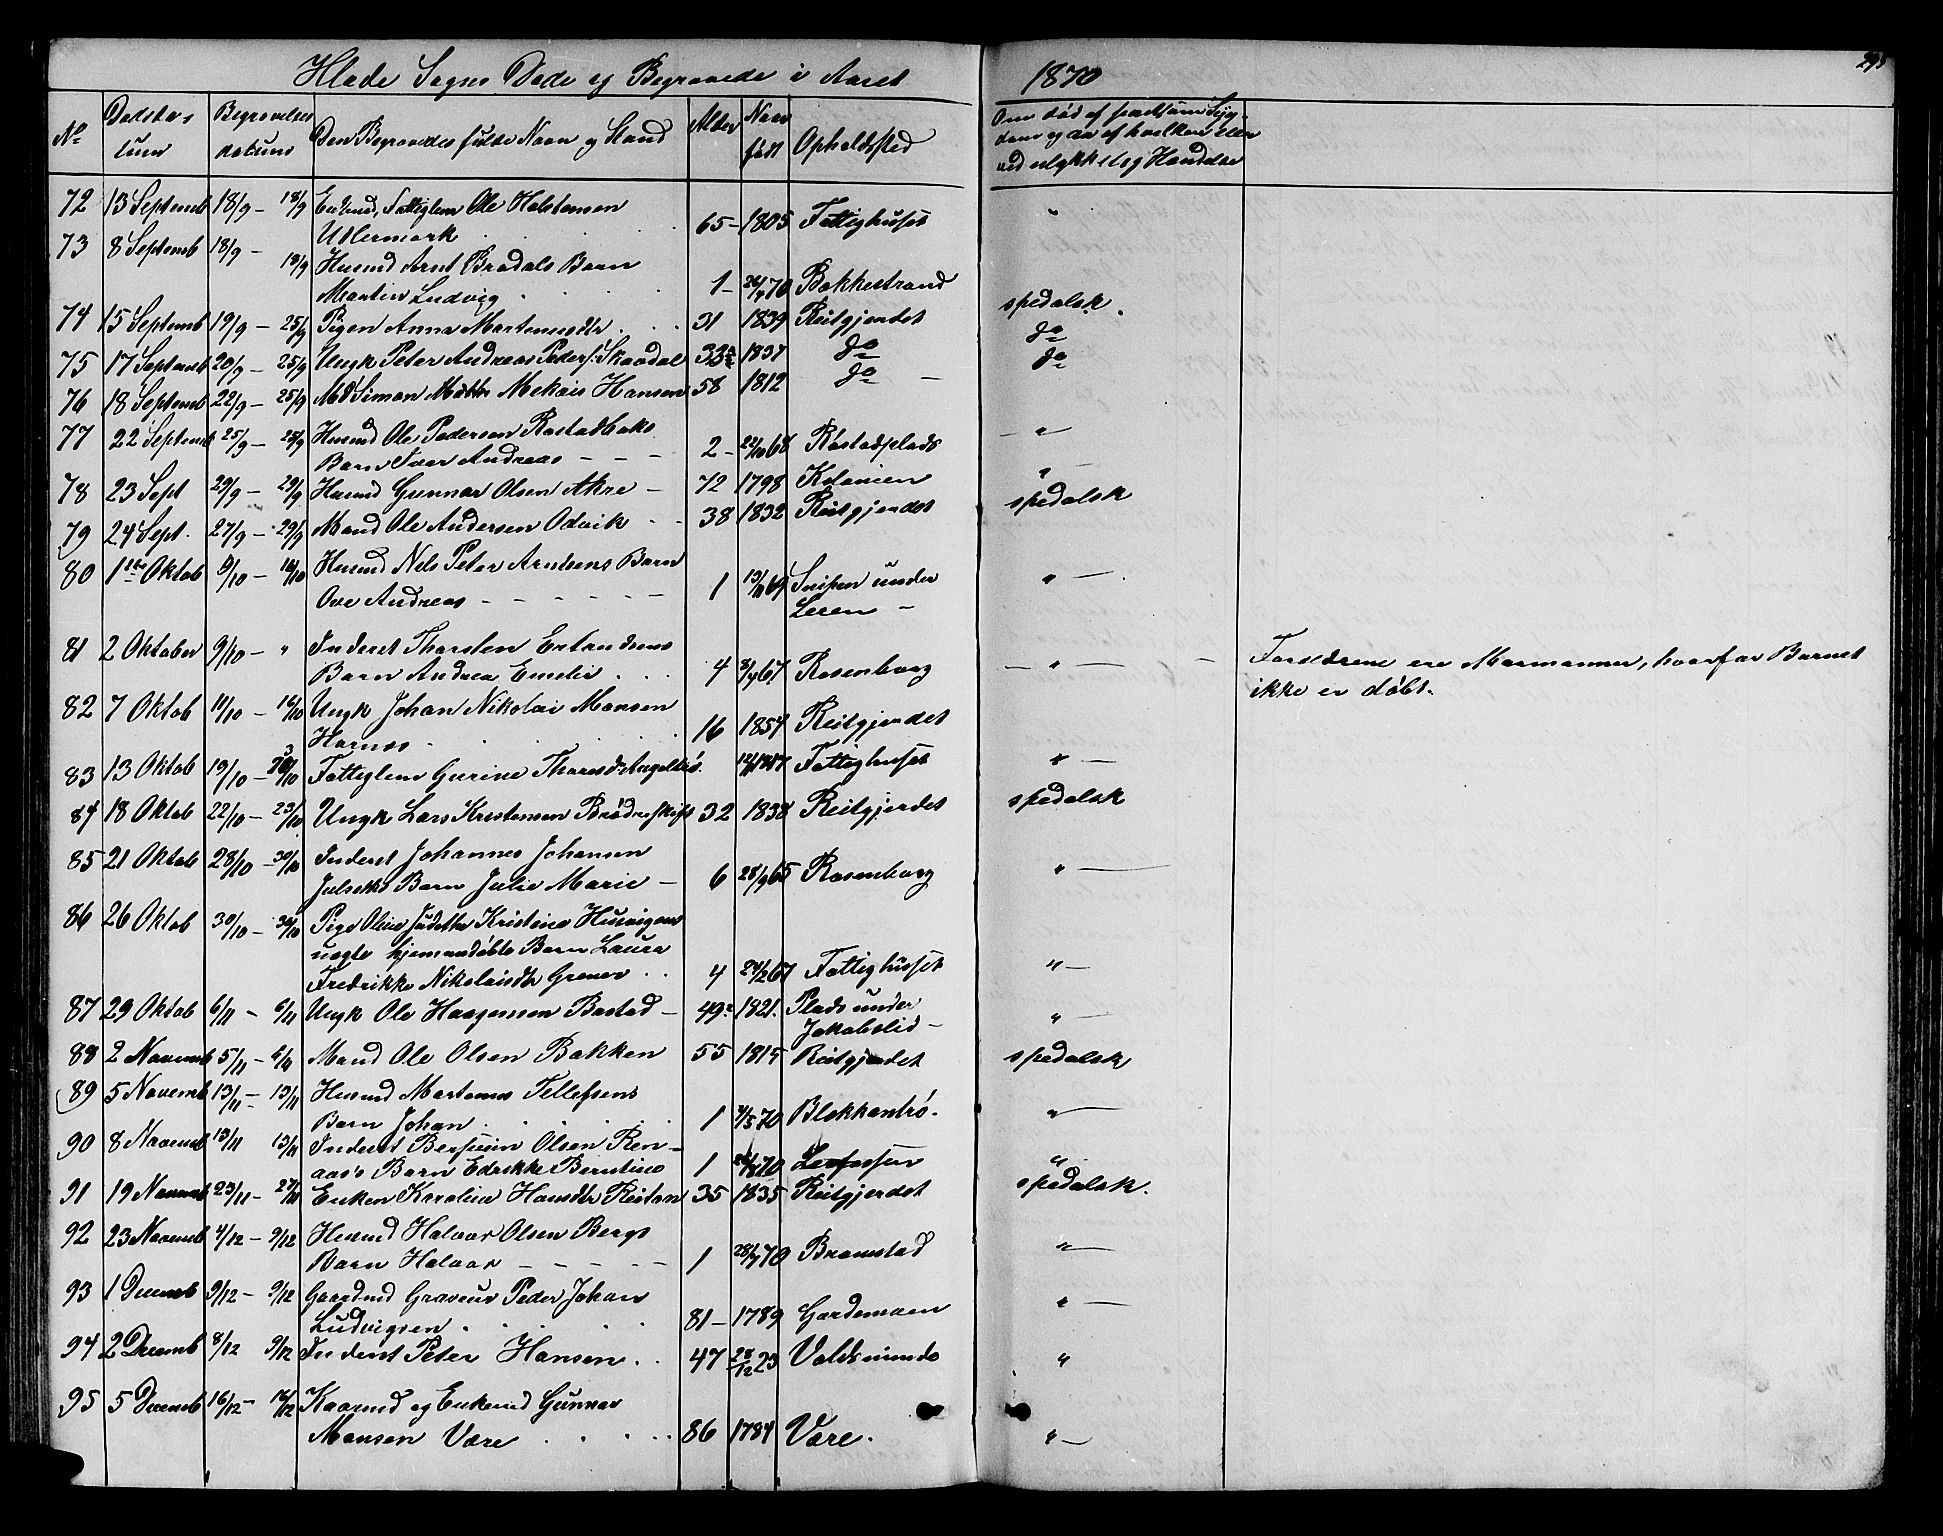 Hlade Sogns Døde og Begravede i Aaret 1870
295
No Dødsda-tum Begravelses datum Den Begravedes fulde Navn og Stand Alder Naar født Opholdssted Om død af smitsom Syg-dom og da af hvilken eller ved ulykkelig Hændelse
72 13 Septemb 18/9 – 18/9 Enkmd, Fattiglem Ole Halstensen
Utlermark . . . . . 65 – 1805 Fattighuset "
73 8 Septemb 18/9 – 18/9 Husmd Arnt Bradals Barn
Martin Ludvig . . . . 1 – 26/7 70 Bakkestrand
74 15 Septemb 19/9 – 25/9 Pigen Anna Martensdtr . . . 31 1839 Reitgjerdet spedalsk.
75 17 Septemb 20/9 – 25/9 Ungk Peter Andreas Peders. Skaadal 33 1837 do do
76 18 Septemb 22/9 – 25/9 Md Simon Mekais Hansen 58 1812 do – do
77 22 Septemb 25/9 – 25/9 Husmd Ole Pedersen Rostadbaks
Barn Iver Andreas – – – 2 – 22/10 68 Rostadplads – " –
78 23 Sept 29/9 – 29/9 Husmd Gunnar Olsen Akre – 72 1798 Kolonien " –
79 24 Sept. 27/9 – 29/9 Mand Ole Andersen Odvik – – 38 1832 Reitgjerdet spedalsk
80 1ste Oktob 9/10 – 16/10 Husmd Nils Peter Arntsens Barn
Ove Andreas – – – – – – 1 13/11 69 Sneipen under " –
Leren –
81 2 Oktober 9/10 – " Inderst Thorsten Erlandsens
Barn Andrea Emelie . . . 4 8/4 67 Rosenborg – " – – Forældrene ere Mormoner, hvorfor Barnet
ikke er døbt.
82 7 Oktob 11/10 – 16/10 Ungk Johan Nikolai Monsen
Harnes . . . . . . 16 1854 Reitgjerdet
83 13 Oktob 19/10 – 30/10 Fattiglem Gurine Thoresdtr . Fattighuset " –
84 18 Oktob 22/10 – 23/10 Ungk Lars Kristensen Brødreskift 32 1838 Reitgjerdet spedalsk
85 21 Oktob 28/10 – 30/10 Inderst Johannes Johansen
Julseths Barn Julie Marie – 6 28/9 65 Rosenborg " –
86 26 Oktob 30/10 – 30/10 Pige Oline Judethe Kristine Husvigens
uægte hjemmedøbte Barn Laura
Fredrikke Nikolaisdtr Grener . . 4 24/2 67 Fattighuset " –
87 29 Oktob 6/11 – 6/11 Ungk Ole Haagensen Bostad – 49 1821. Plads under " –
Jakobslid –
88 2 Novemb 5/11 – 6/11 Mand Ole Olsen Bakken 55 1815 Reitgjerdet spedalsk
89 5 Novemb 13/11 – 13/11 Husmd Martenus Tellefsens
Barn Johan . . . . . 1 4/5 70 Blekkantrø. " –
90 8 Novemb 13/11 13/11 Inderst Bersvein Olsen Ren-
aas's Barn Edrikke Berntine 1 70 "
91 19 Novemb 23/11 – 27/11 Enken Karolina Hansdtr Reitan 35 1835 Reitgjerdet spedalsk.
92 23 Novemb 4/12 – 9/12 Husmd Halvor Olsen Bergs
Barn Halvor – – – – – 1 28/7 70 Bromstad " –
93 1 Decemb 9/12 – 9/12 Gaardmd Graveur Peder Johan
Ludvigsen . . . . . 81 – 1789 Gardemoen " –
94 2 Decemb 8/12 9/12 Inderst Peter Hansen . . 47 28/12 23 Valdsminde "
95 5 Decemb 16/12 – 16/12 Kaarmd og Enkemd Gunnar
Monsen Være . . . . . 86 1784 Være. " –